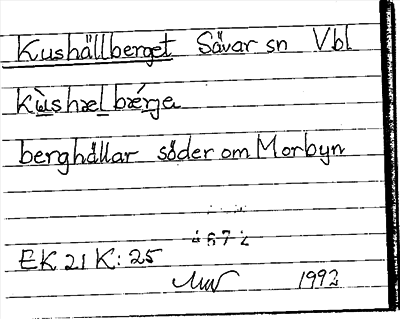 Kushällberget Sävar sn Vbl
kùshæl bǽrje
berghällar söder om Morbyn
EK 21 K: 25
1992